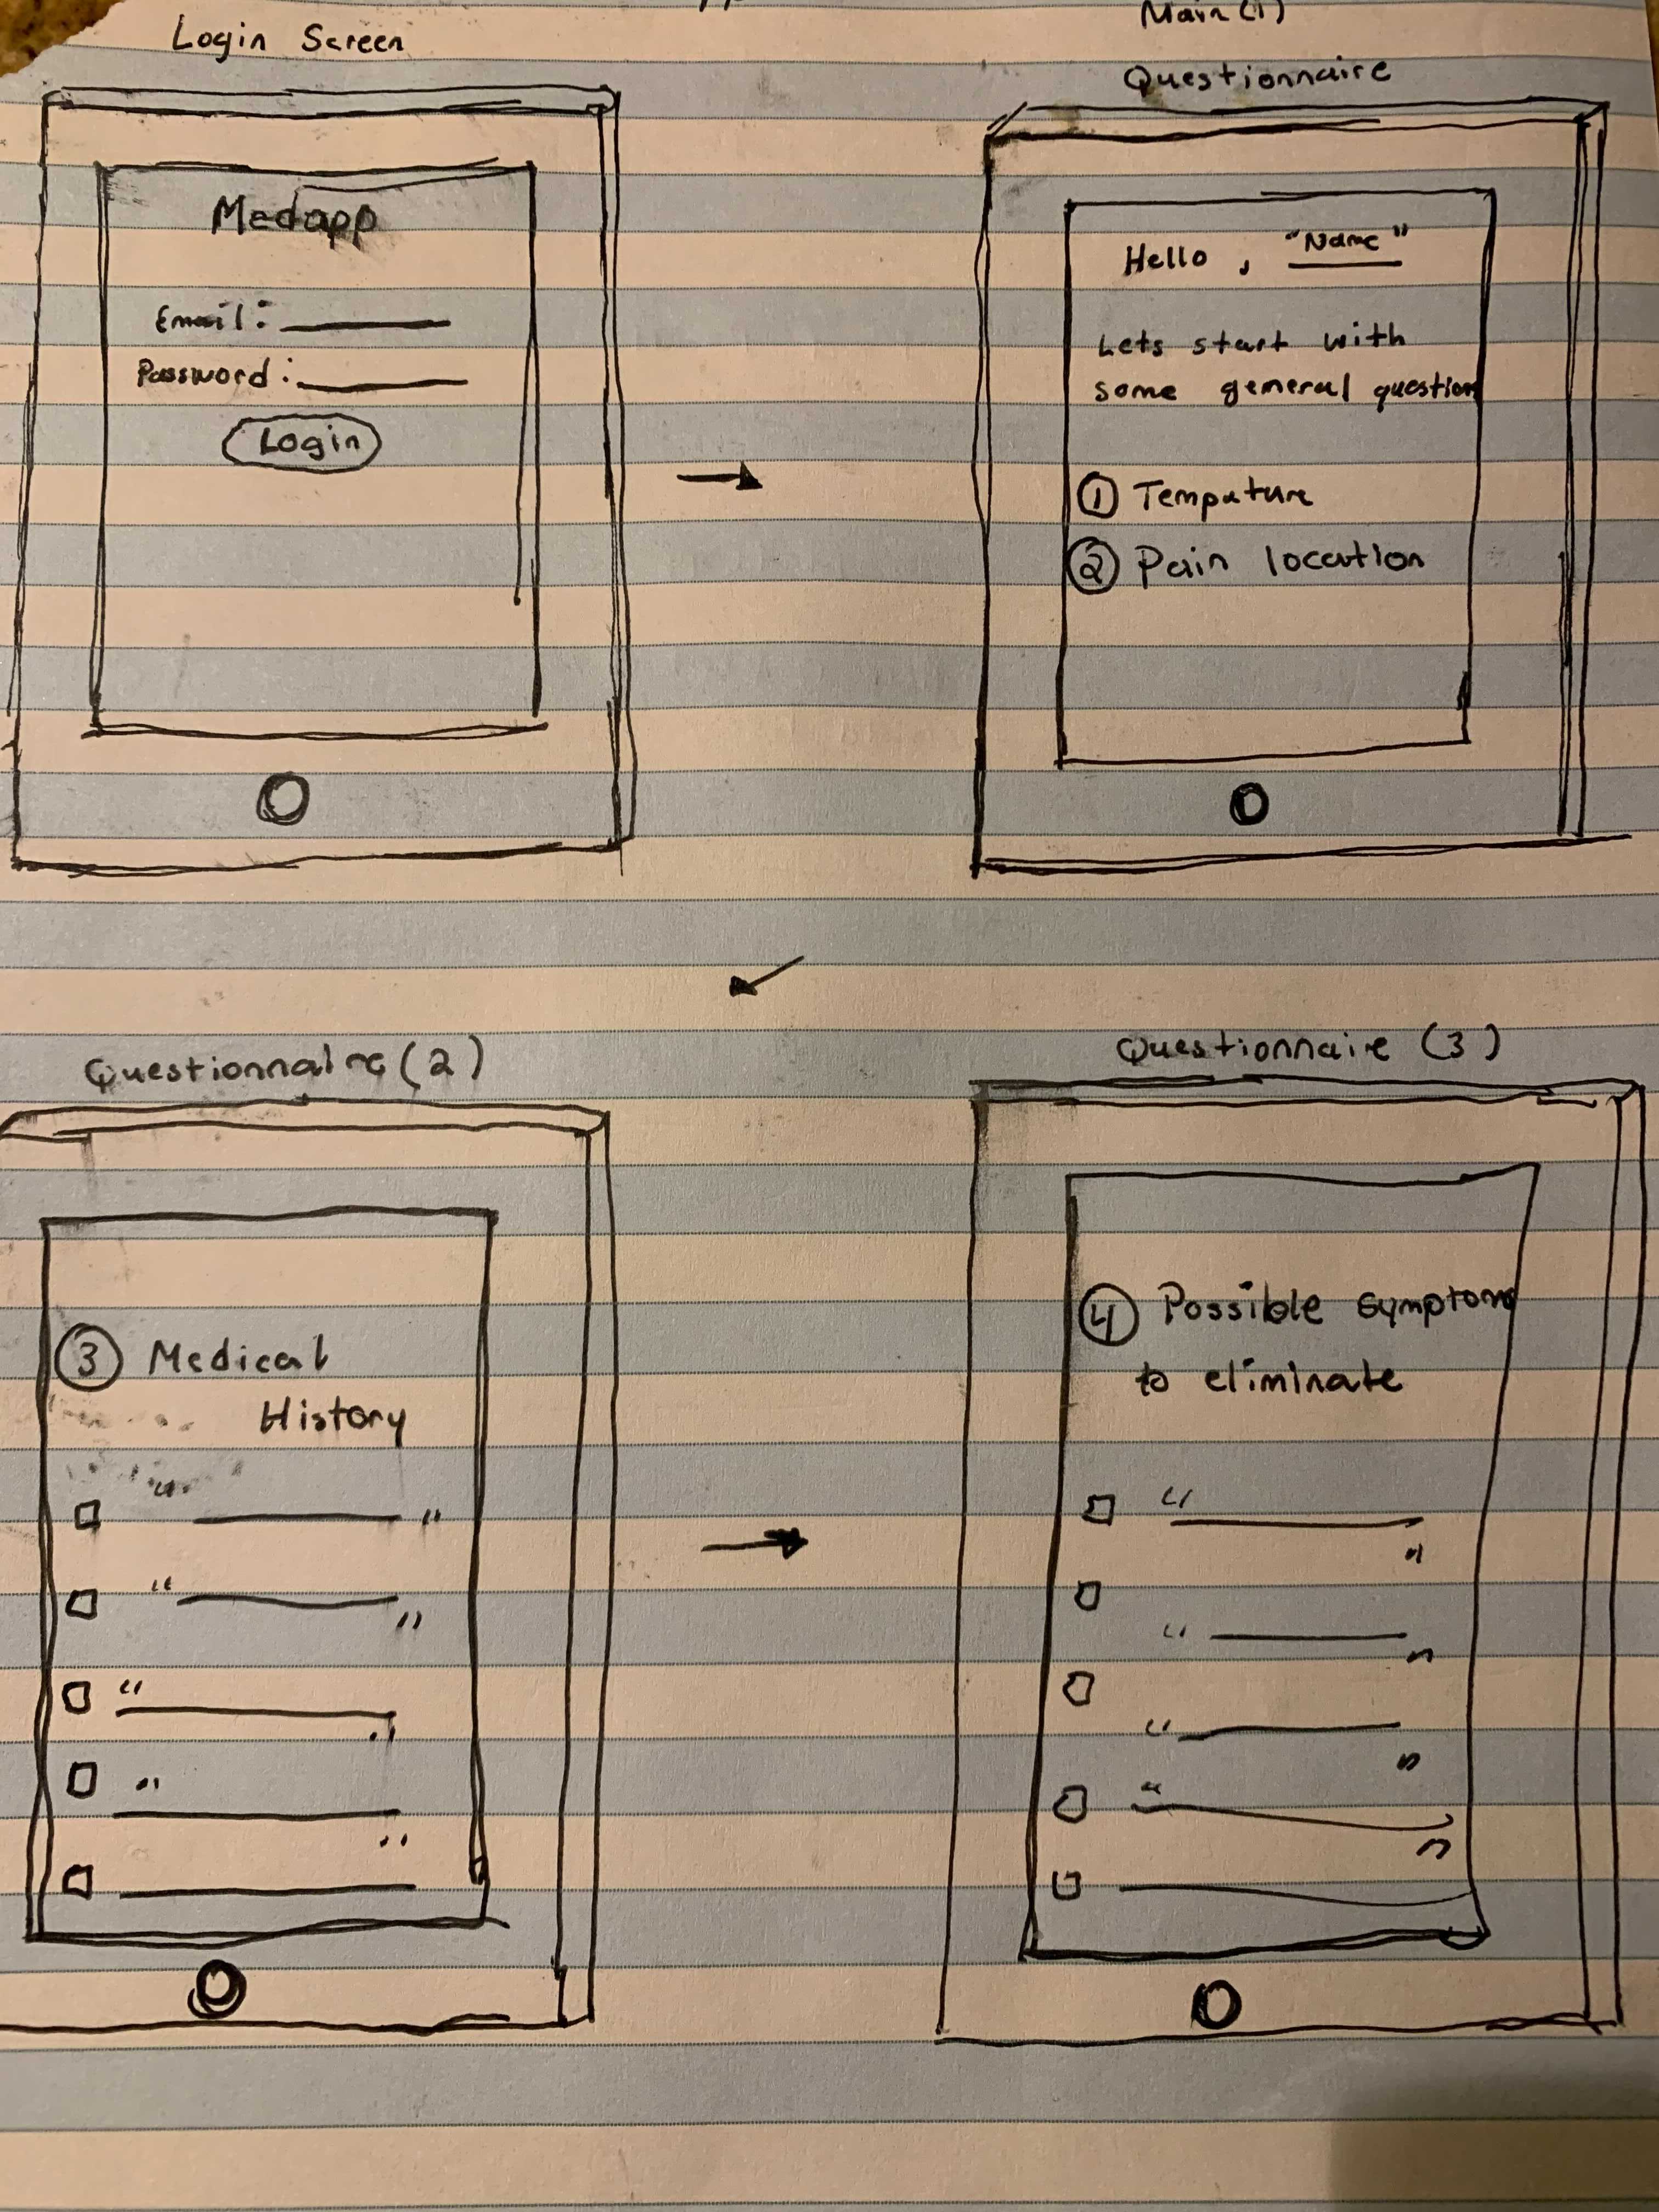 Login Screen
Medapp
Email:
Password:
Login
Main (1)
Questionnaire
Hello, "Name"
Lets start with
some general question
① Temputure
② Pain location
Questionnaire (2)
③ Medical
History
" "
" "
" "
" "
Questionnaire (3)
④ Possible symptoms
to eliminate
" "
" "
" "
" "